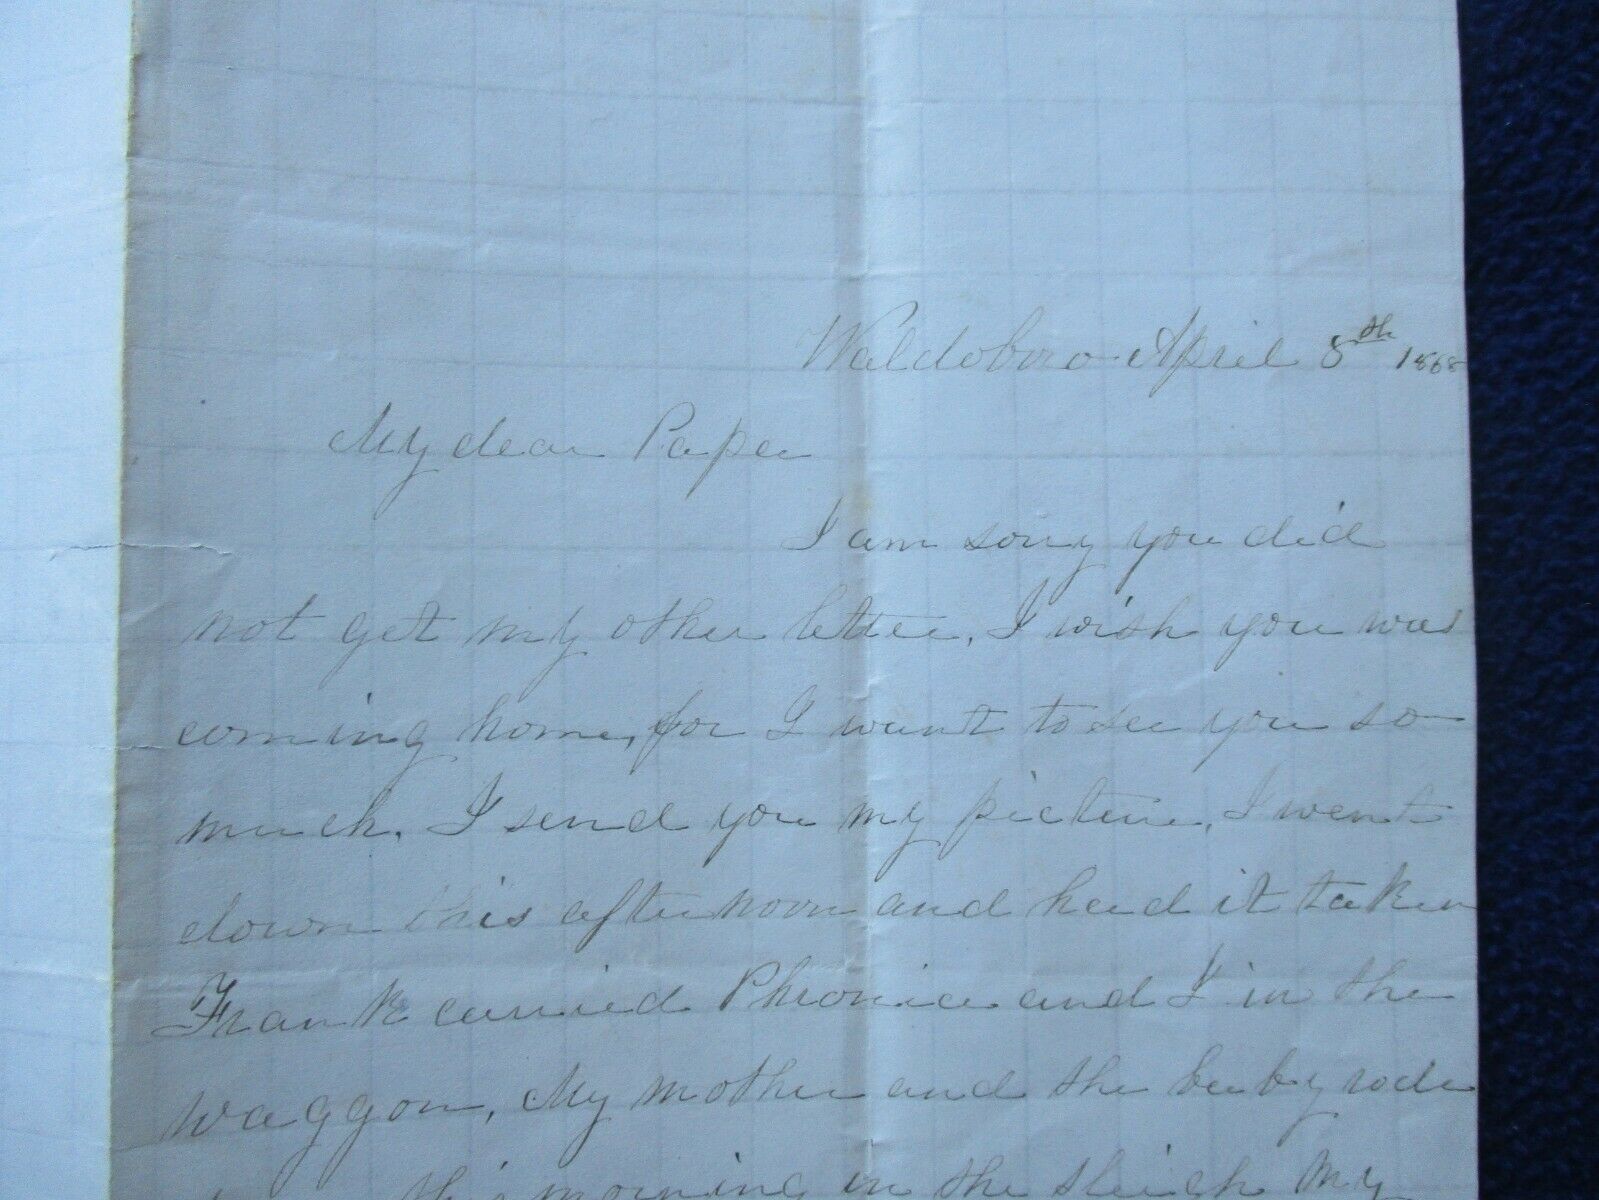 Waldoboro April 8th 1868
My dear Papa
I am sorry you did
not get my other letter, I wish you was
coming home, for I want to see you so
much. I send you my picture, I went
down this afternoon and had it taken
Frank carried Phronia and I in the
waggon, My mother and the baby rode
this morning in the sleigh My